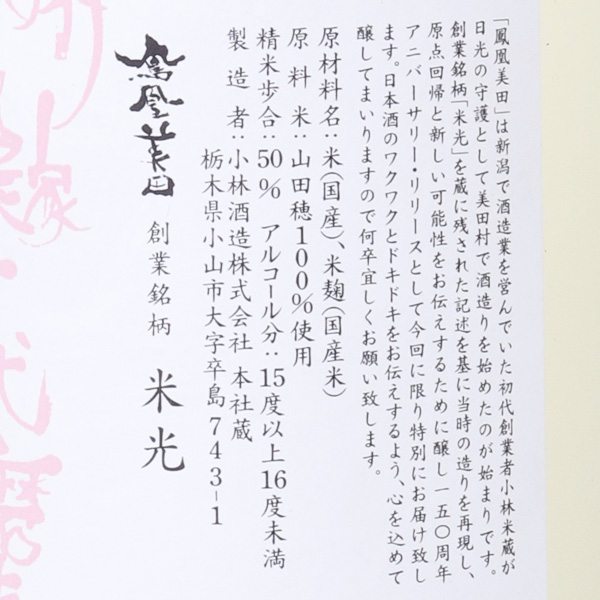 「鳳凰美田」は新潟で酒造業を営んでいた初代創業者小林米蔵が
日光の守護として美田村で酒造りを始めたのが始まりです。
創業銘柄「米光」を蔵に残された記述を基に当時の造りを再現し、
原点回帰と新しい可能性をお伝えするために醸し一五〇周年
アニバーサリー・リリースとして今回に限り特別にお届け致し
ます。日本酒のワクワクとドキドキをお伝えするよう、心を込めて
醸してまいりますので何卒宜しくお願い致します。
原材料名：米（国産）、米麹（国産米）
原料米：山田穂100％使用
精米歩合：50％ アルコール分：15度以上16度未満
製造者：小林酒造株式会社 本社蔵
栃木県小山市大字卒島743-1
鳳凰美田 創業銘柄 米光